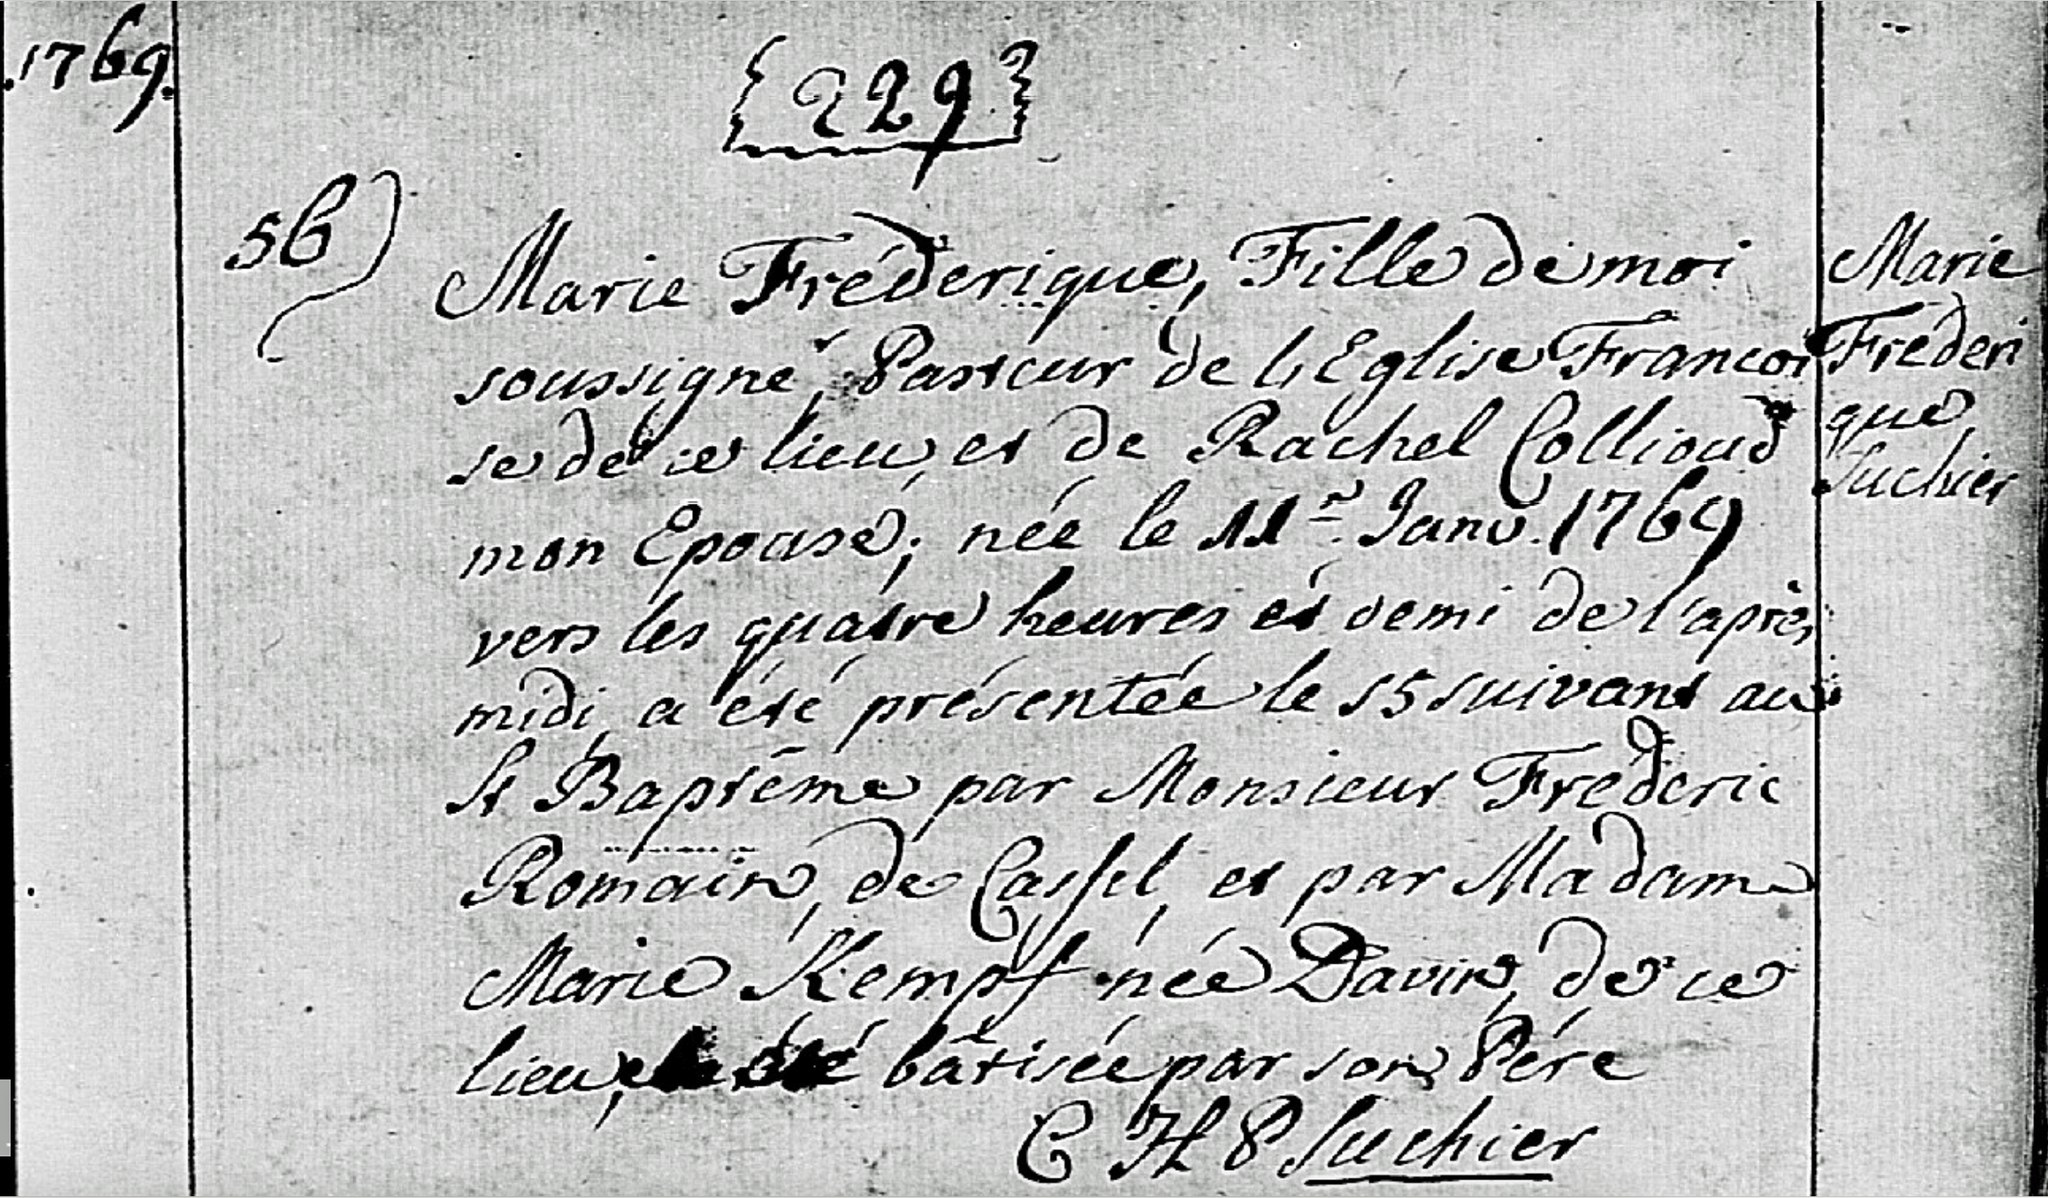 1769.
{229}
56)
Marie Fréderique, Fille de moi
soussigné, Pasteur de l'Eglise Françoi
se de ce lieu, et de Rachel Collioud
mon Epouse; née le 11r Janv. 1769
vers les quatre heures et demi de l'après
midi, a été présentée le 15 suivant au
St Baptéme par Monsieur Fréderic
Romain, de Cassel, et par Madame
Marie Kempf née Davin, de ce
lieu, bâtisée par son Pére
C H P Suchier
Marie
Frederi
que
Suchier